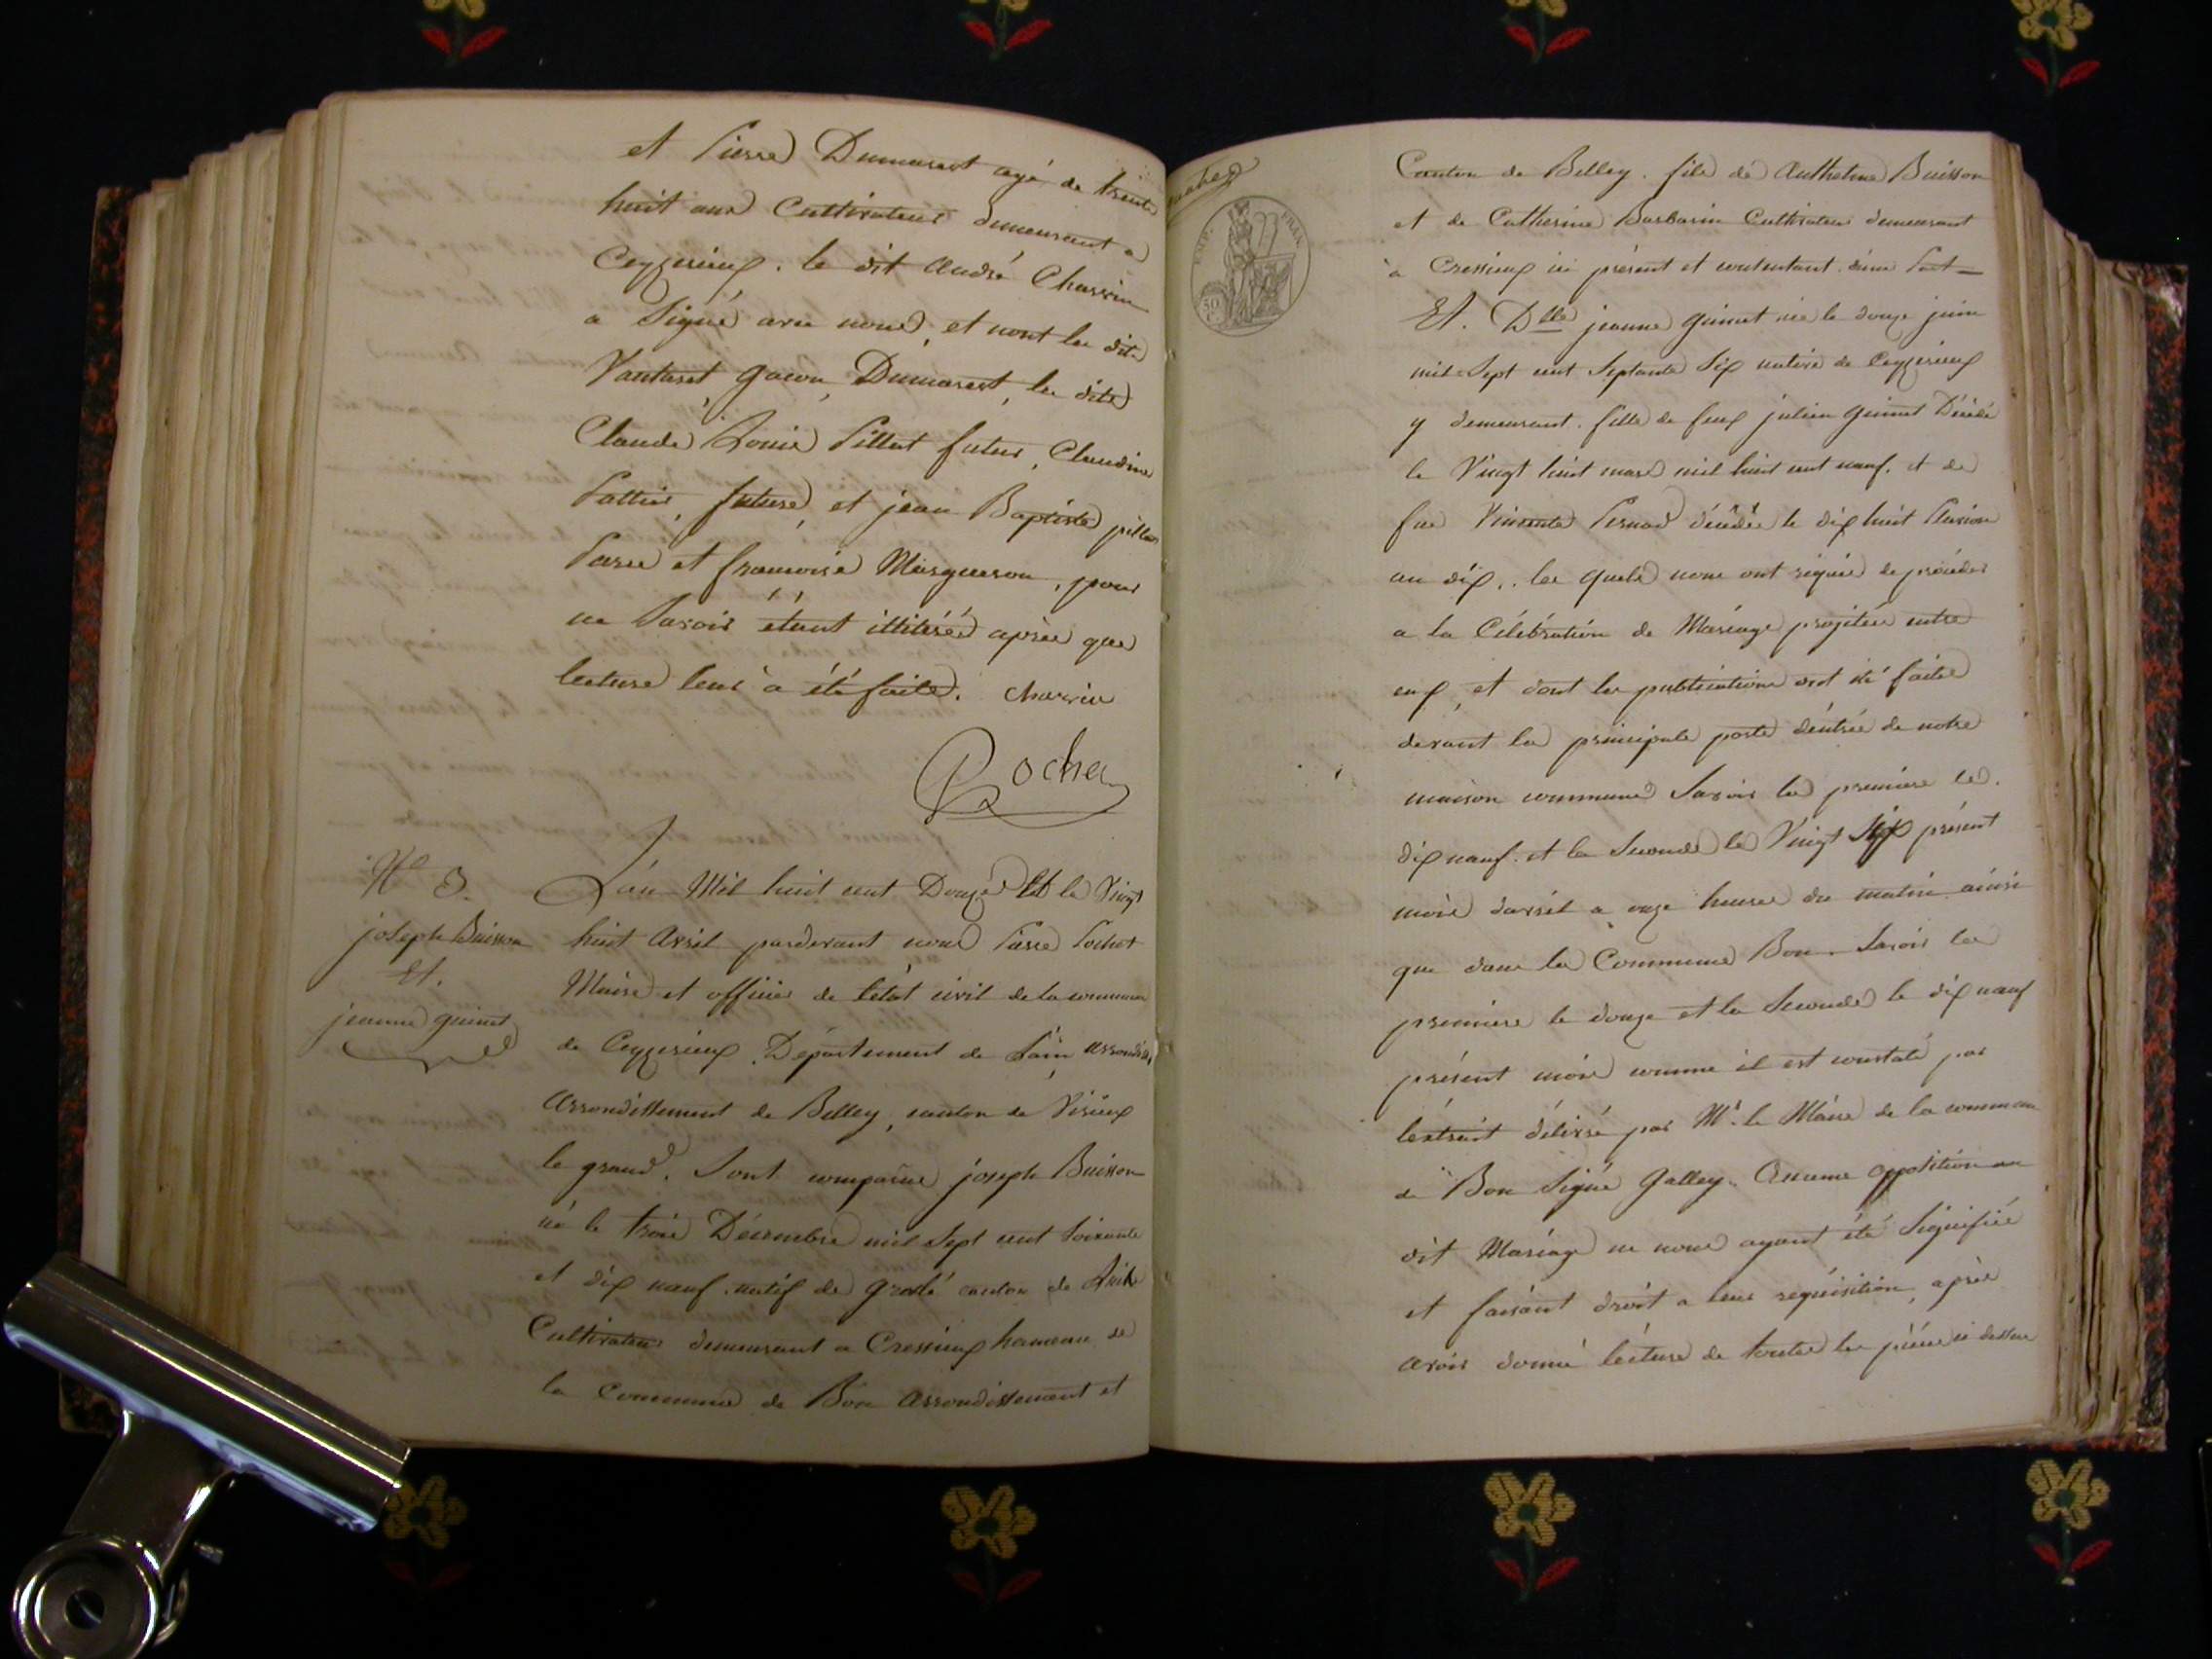 et Pierre Dumarest agé de trente
huit ans Cultivateur demeurant a
Ceyzerieux. le dit André Charvin
a Signé avec nous, et nont les dits
Vantaret, gacon, Dumarest, les dits
Claude Louis Pillat futur, Claudine
Pattier, future, et jean Baptiste pillat
Paree et francoise Marguerou, pour
ne Savoir étant illitérés après que
lecture leur à été faite. charvin
Rocher
N° 3.
joseph Buisson
Et.
jeanne guinet
Lán Mil huit cent Douze Et le Vingt
huit Avril pardevant nous Pierre Pochet
Maire et officier de l'état civil de la commune
de Ceyzerieux, Département de Láin,
Arrondissement de Belley, canton de Virieux
le grand. Sont comparus joseph Buisson
né le trois Décembre mil Sept cent Soixante
et dix neuf natif de groslé canton de Luis
Cultivateur demeurant a Cressieux hameau de
la Commune de Bon Arrondissement et
EMP. FRAN.
50 C.
Canton de Belley. fils de Anthelme Buisson
et de Catherine Barbarin Cultivateur demeurant
à Cressieux ici présent et contentant. dúne Part
Et. Dlle jeanne guinet née le douze juin
mil=Sept cent Septante Six native de Ceyzerieux
y demeurant. fille de feux julien guinet Décédé
le Vingt huit mars mil huit cent neuf. et de
fue Vincente Pernod décédée le dix huit Pluviose
an dix. les quels nous ont réquis de procéder
a la Célébration de Mariage projétée entre
eux, et dont les publications ont été faites
devant la principale porte déntrée de notre
maison commune Savoir la premiere le
dix neuf. et la Seconde le Vingt Six présent
mois davril a onze heures du matin ainsi
que dans la Commune Bon. Savoir la
premiere le douze et la Seconde le dix neuf
présent mois comme il est constaté par
léxtrait délivré par Mr. le Maire de la commune
de Bon Signé Galley. Aucune opposition au
dit Mariage ne nous ayant été Signifiée
et faisant droit a leur réquisition, après
avoir donné lecture de toutes les pièces ci dessus